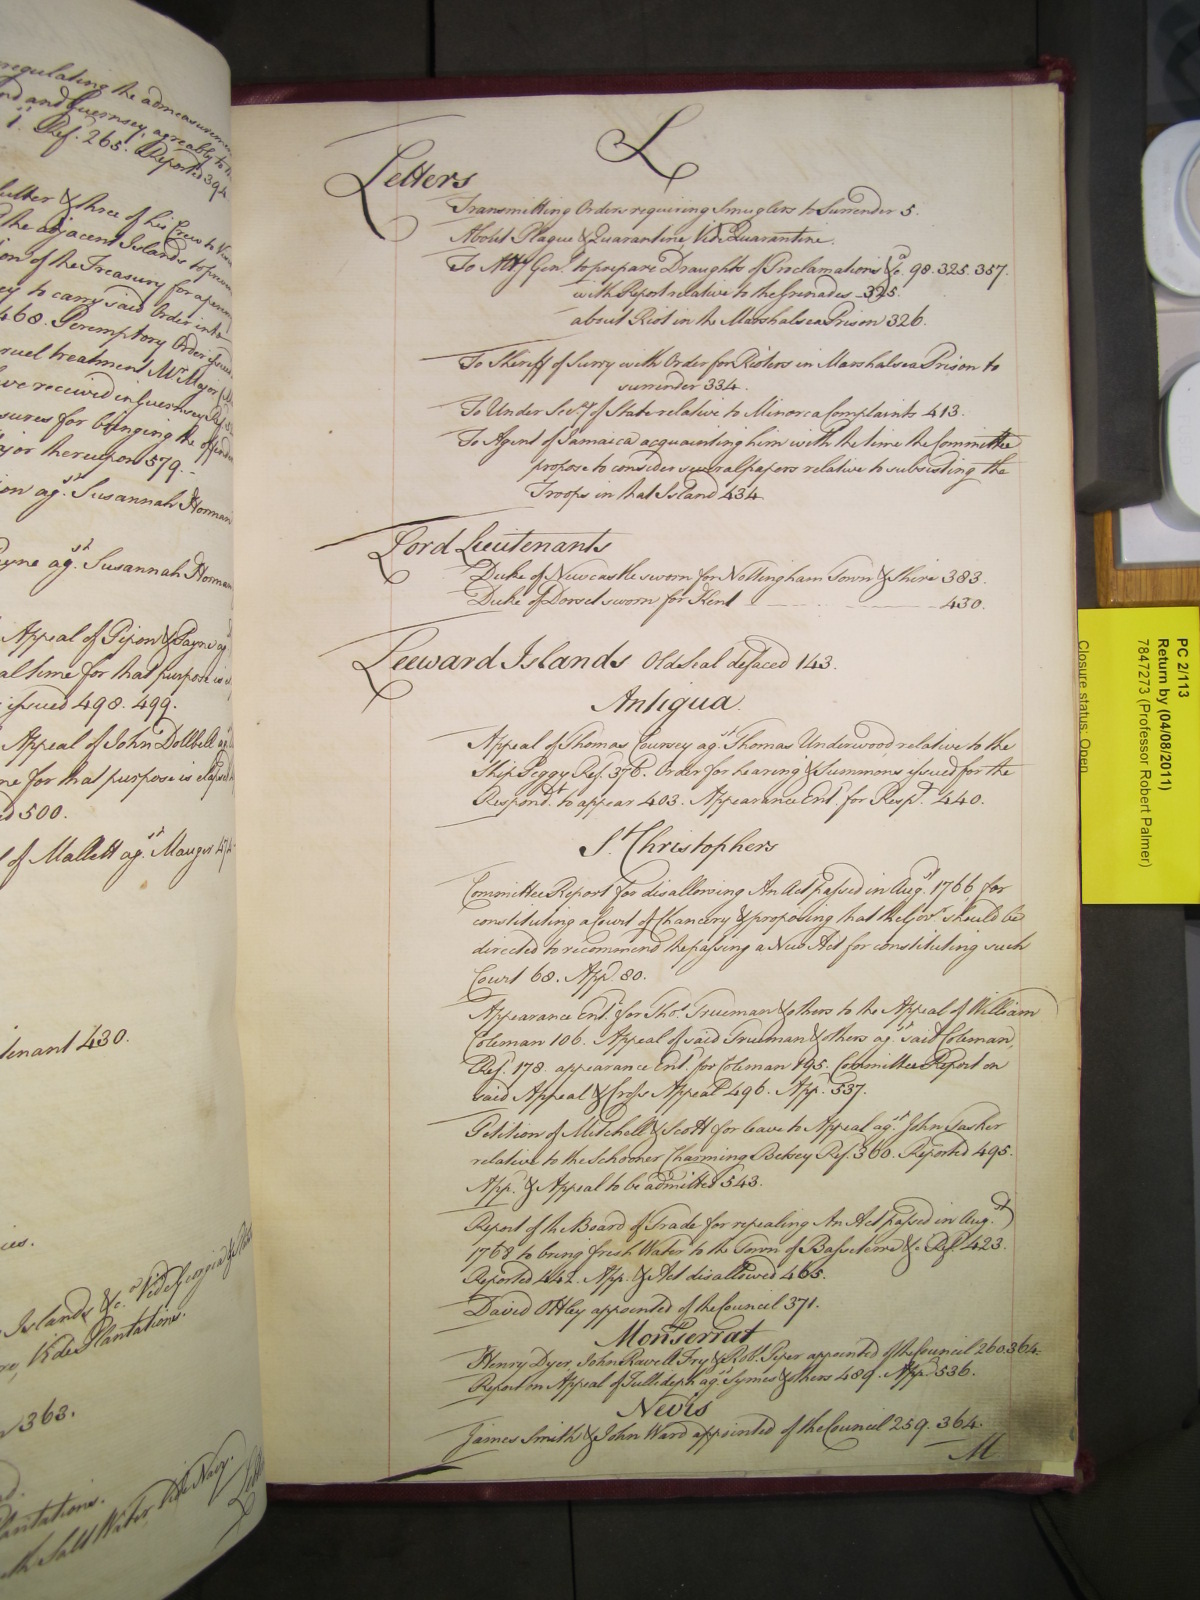 regulating the admeasurem
and Guernsey, agreably to
1. Ref. 265. Reported 394
Cutter & three of his Crew to
the adjacent Islands to
ion of the Treasury for a
ey to carry said Order into
468. Peremptory Order issued
ruel treatment Mr. Major
ve received in Guernsey
sures for bringing the offend
ajor thereupon 579.
on agst. Susannah Horman
ayne agst. Susannah Horman
Appeal of Pipon & Payne ag
al time for that purpose is
issued 498. 499.
Appeal of John Dollbell ag
ne for that purpose is elapsed
d 500.
l of Mallett agst. Mauger 474
tenant 430.
ies.
Islands &c. Vide Georgia &
Vide Plantations.
363.
lantations.
Salt Water, Vide Navy.
L
Letters
Transmitting Orders requiring Smuglers to Surrender 5.
About Plague & Quarantine Vide Quarantine.
To Atty. Genl. to prepare Draughts of Proclamations &c. 98. 325. 357.
with Report relative to the Grenades 325.
about Riot in the Marshalsea Prison 326.
To Sheriff of Surry with Order for Rioters in Marshalsea Prison to
surrender 334.
To Under Secry. of State relative to Minorca Complaints 413.
To Agent of Jamaica acquainting him with the time the Committee
propose to consider several papers relative to subsisting the
Troops in that Island 434.
Lord Lieutenants
Duke of Newcastle sworn for Nottingham Town & Shire 383.
Duke of Dorset sworn for Kent 430.
Leeward Islands Old Seal defaced 143.
Antigua.
Appeal of Thomas Coursey agst. Thomas Underwood relative to the
Ship Peggy Ref. 376. Order for hearing & Summons issued for the
Respondt. to appear 403. Appearance Entd. for Respt. 440.
St. Christophers
Committee Report for disallowing An Act passed in Augst. 1766 for
constituting a Court of Chancery & proposing that the Govr. should be
directed to recommend the passing a New Act for constituting such
Court 68. Appd. 80.
Appearance Entd. for Thos. Trueman & others to the Appeal of William
Coleman 106. Appeal of said Trueman & others agst. said Coleman,
Ref. 178. appearance Entd. for Coleman 195. Committee Report on
said Appeal & Cross Appeal 496. App. 537.
Petition of Mitchell & Scott for leave to Appeal agst. John Tasker
relative to the Schooner Charming Betsey Ref. 360. Reported 495.
App. & Appeal to be admitted 543.
Report of the Board of Trade for repealing An Act passed in Augst.
1768 to bring fresh Water to the Town of Basseterre &c. Ref. 423.
Reported 442. App. & Act disallowed 465.
David Ottley appointed of the Council 371.
Montserrat
Henry Dyer, John Ravell Fry & Robt. Piper appointed of the Council 260. 364.
Report on Appeal of Tullideph agst. Symes & others 489. Appd. 536.
Nevis
James Smith & John Ward appointed of the Council 259. 364.
M
PC 2/113
Return by (04/08/2011)
7847273 (Professor Robert Palmer)
Closure status: Open